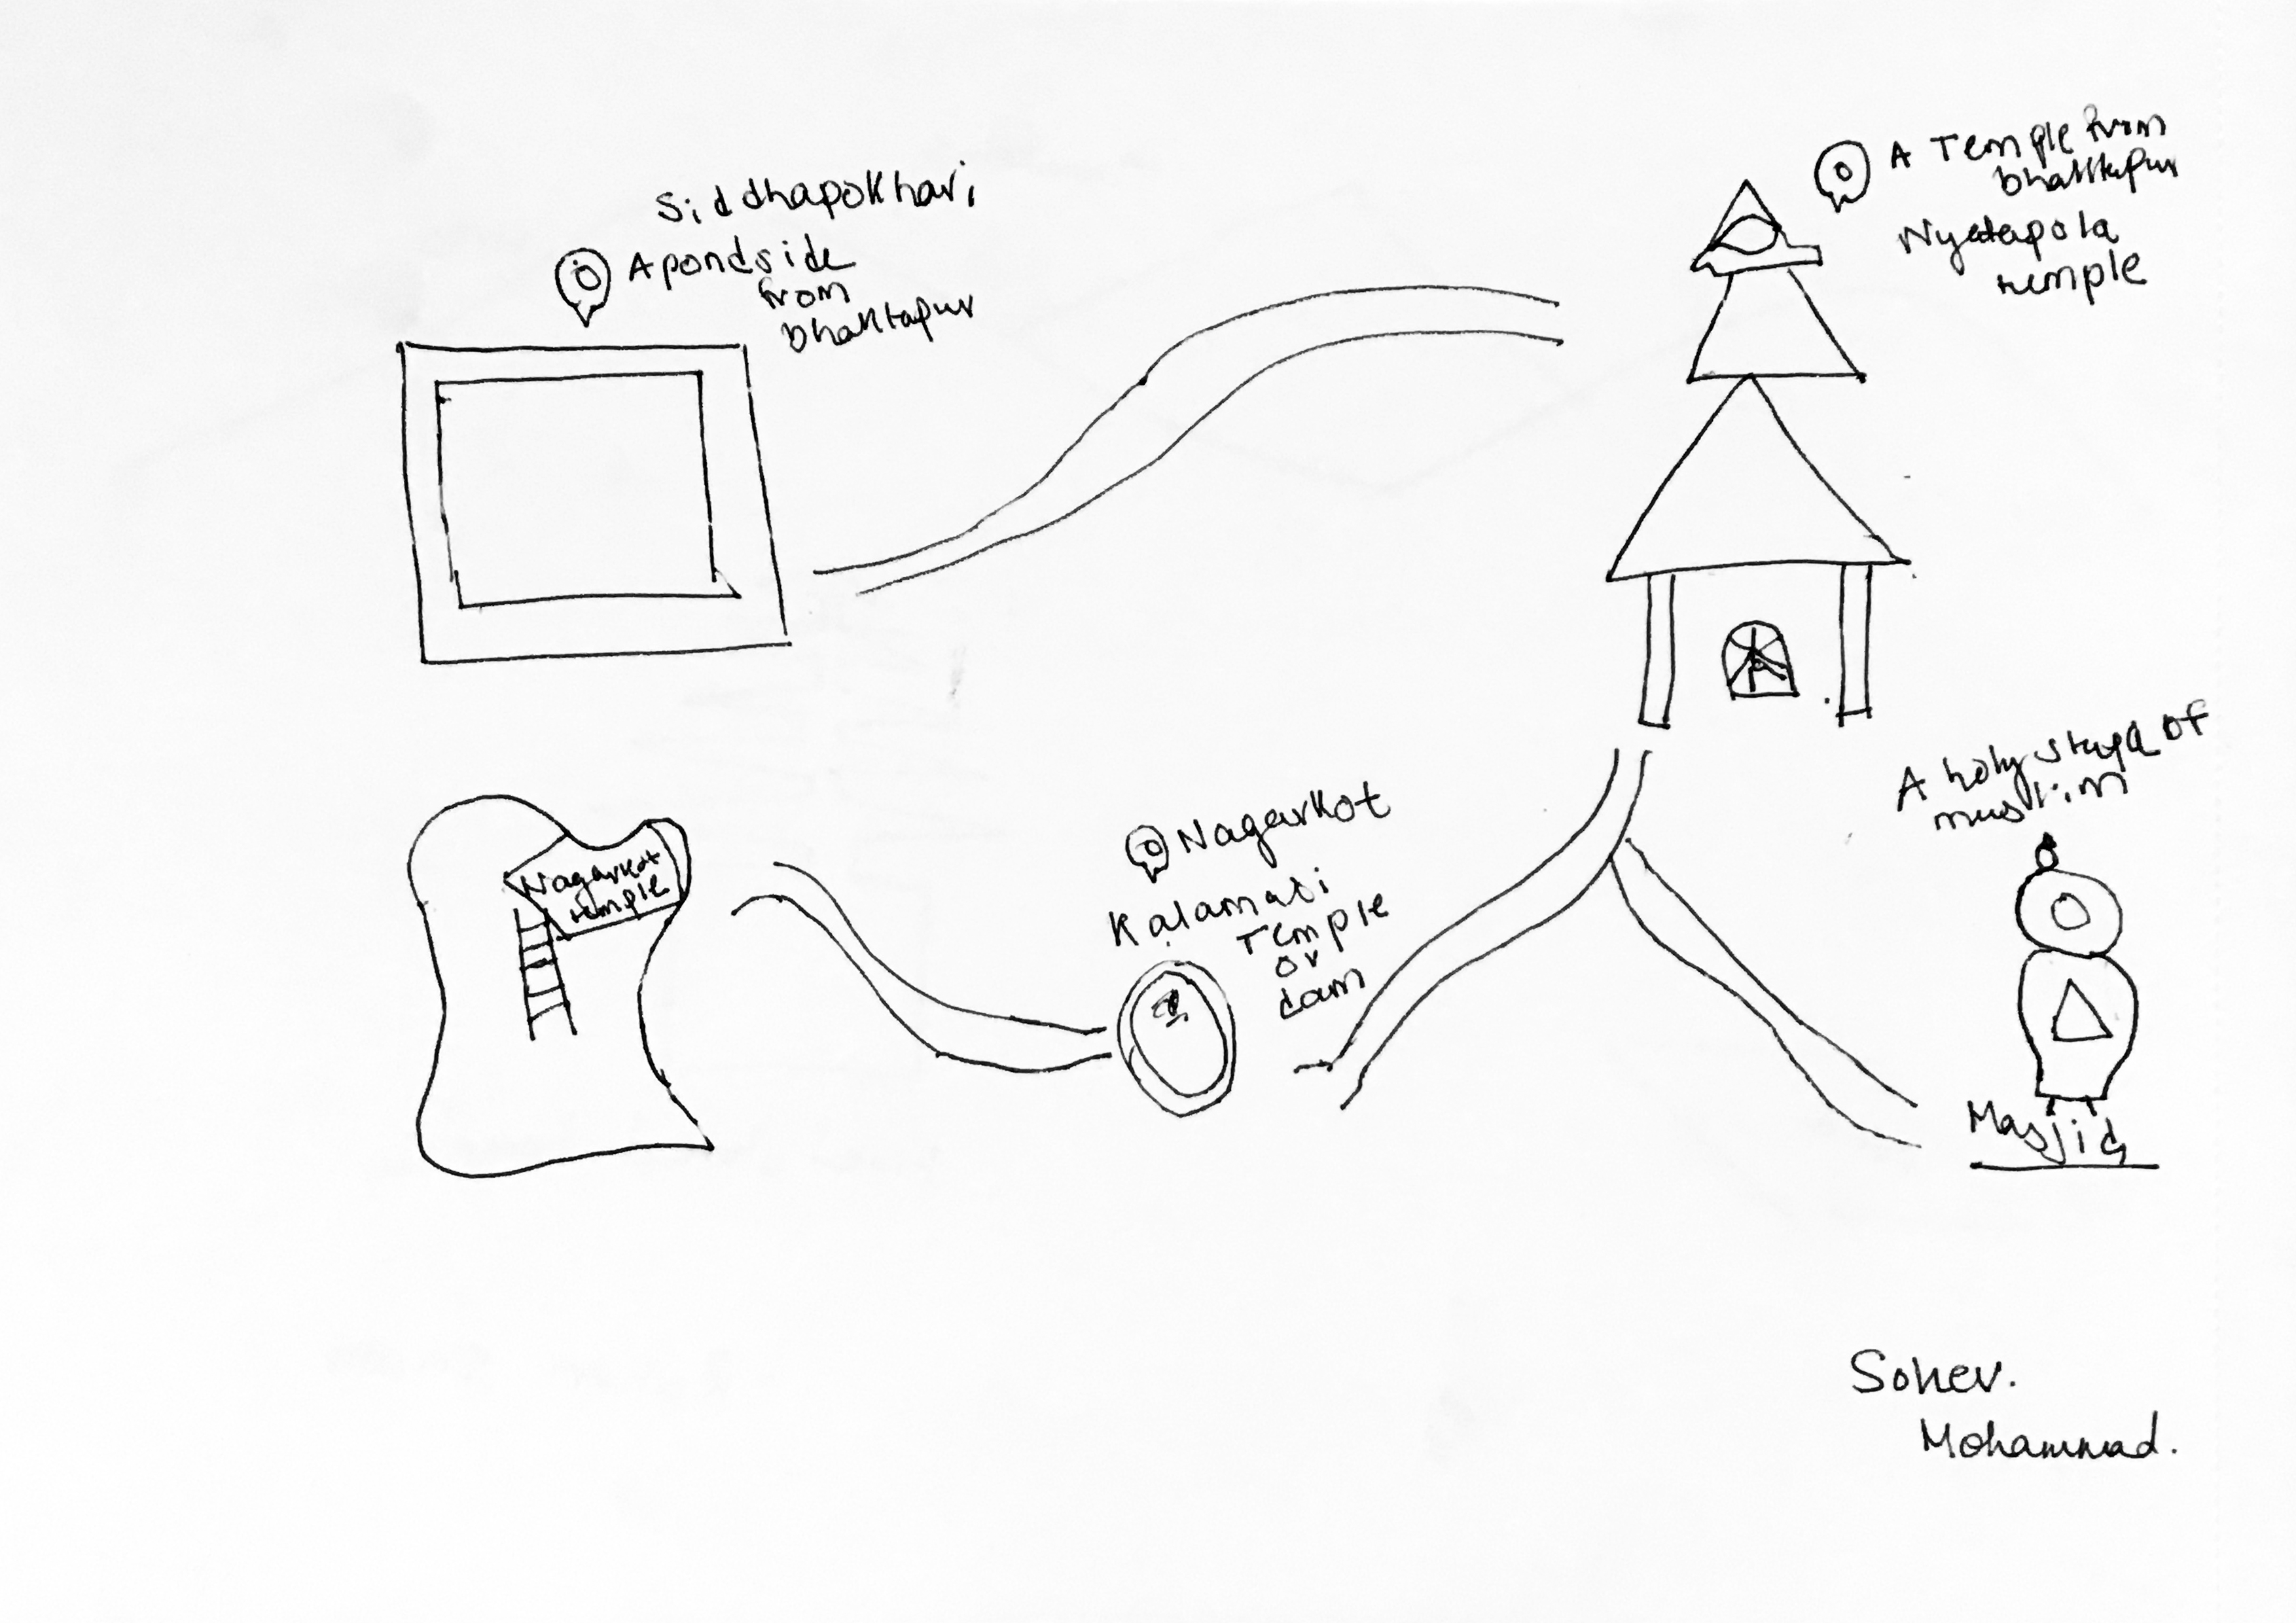 Siddhapokhari
A pondside
from
bhaktapur
A Temple from
bhaktapur
Nyatapola
temple
Nagarkot
temple
Nagarkot
Kalamasi
Temple
or
dam
A holy stupa of
muslim
Masjid
Soher.
Mohammad.